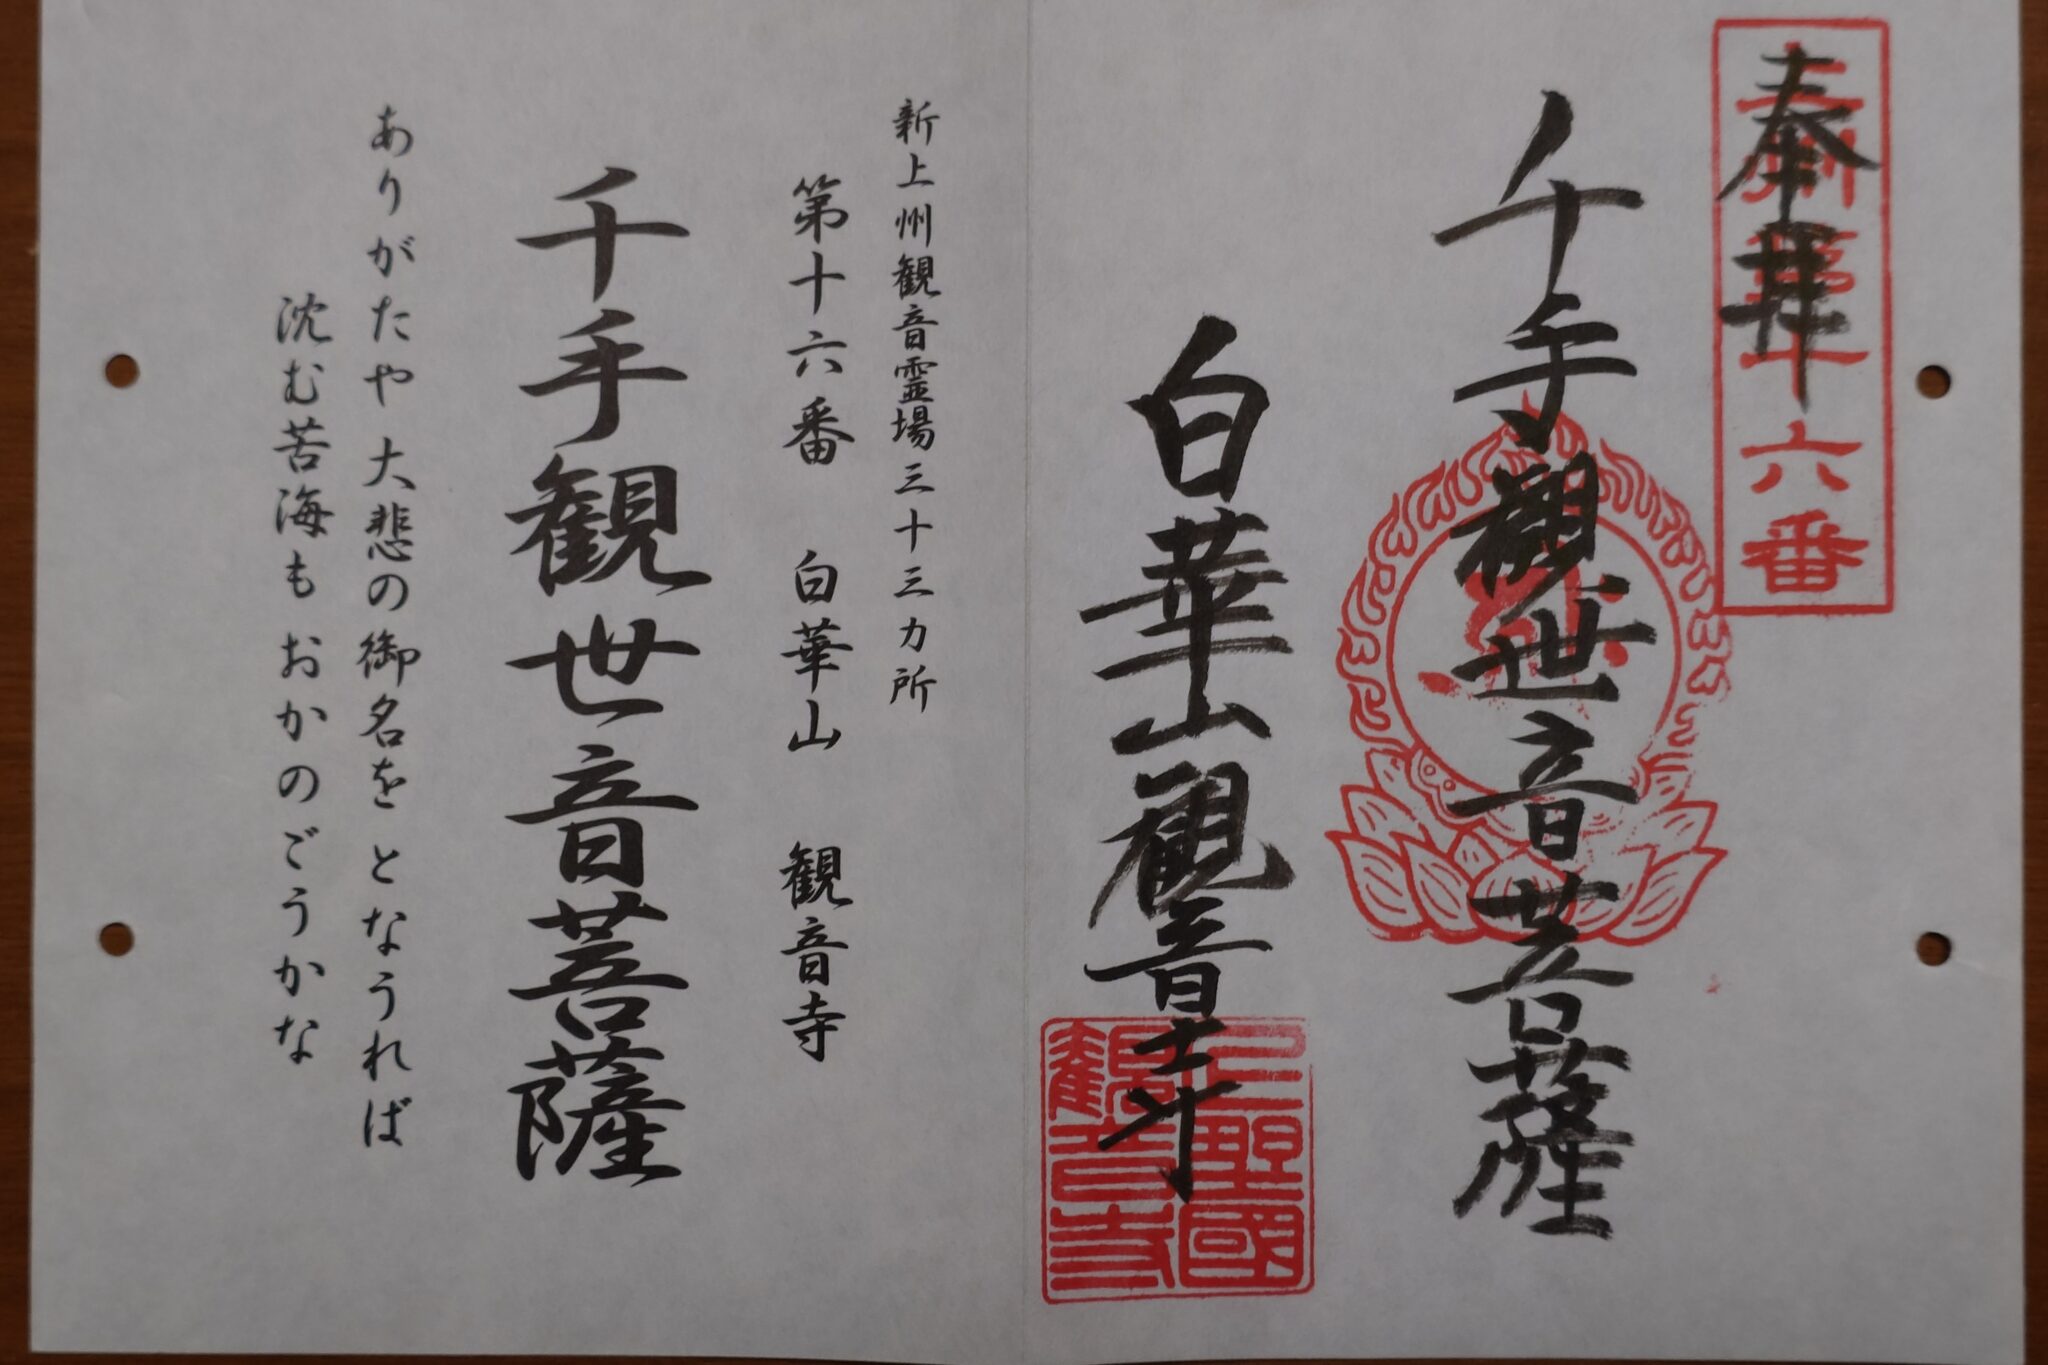 奉拝
上州第十六番
千手観世音菩薩
白華山観音寺
観音寺
新上州観音霊場三十三カ所
第十六番 白華山 観音寺
千手観世音菩薩
ありがたや 大悲の御名を となうれば
沈む苦海も おかのごうかな